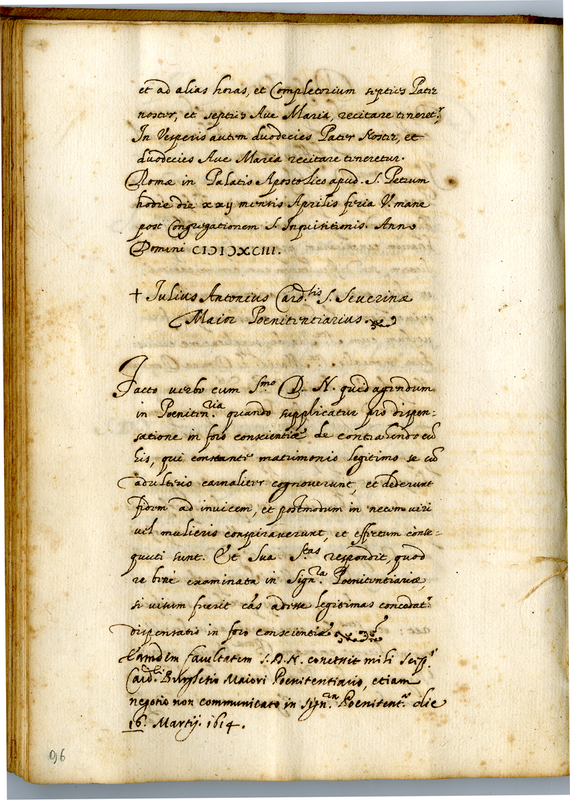 et ad alias horas, et Completorium septies Pater
noster, et septies Ave Maria, recitare teneret.r
In Vesperis autem duodecies Pater Noster, et
duodecies Ave Maria recitare teneretur.
Romæ in Palatio Apostolico apud S. Petrum
hodie die xxij mensis Aprilis feria V. mane
post Congregationem S. Inquisitionis. Anno
Domini CIƆIƆXCIII.
+ Iulius Antonius Card.lis S. Severinæ
Maior Poenitentiarius.
Facto verbo cum S.mo D. N. quid agendum
in Poeniten.ria quando supplicatur pro dispen-
satione in foro conscientiæ de contrahendo cũ
his, qui constante matrimonio legitimo se cũ
adulterio carnaliter cognoverunt, et dederunt
fidem ad invicem, et postmodum in necem viri
vel mulieris conspiraverunt, et effectum conse-
quuti sunt. Et Sua S.tas respondit, quod
re bene examinata in Sign.ra Poenitentiariæ
si visum fuerit cãs adesse legitimas concedat.r
dispensatio in foro conscientiæ
Eamdem facultatem S. D. N. concessit mihi Scip.
Card.li Burghesio Maiori Poenitentiario, etiam
negotio non communicato in Sign.ra Poenitent.æ die
16. Martij. 1614.
96